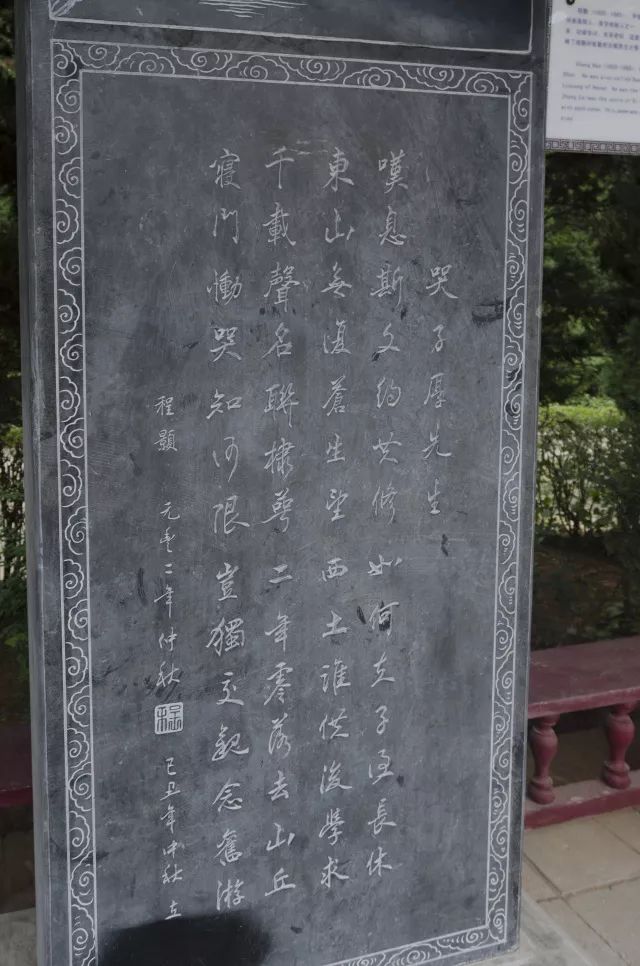 哭子厚先生
嘆息斯文約共修 如何夫子便長休
東山無復蒼生望 西土誰供後學求
千載聲名聯棣萼 二年零落去山丘
寢門慟哭知何限 豈獨交親念舊游
程顥 元豐二年仲秋 程 己丑年仲秋立